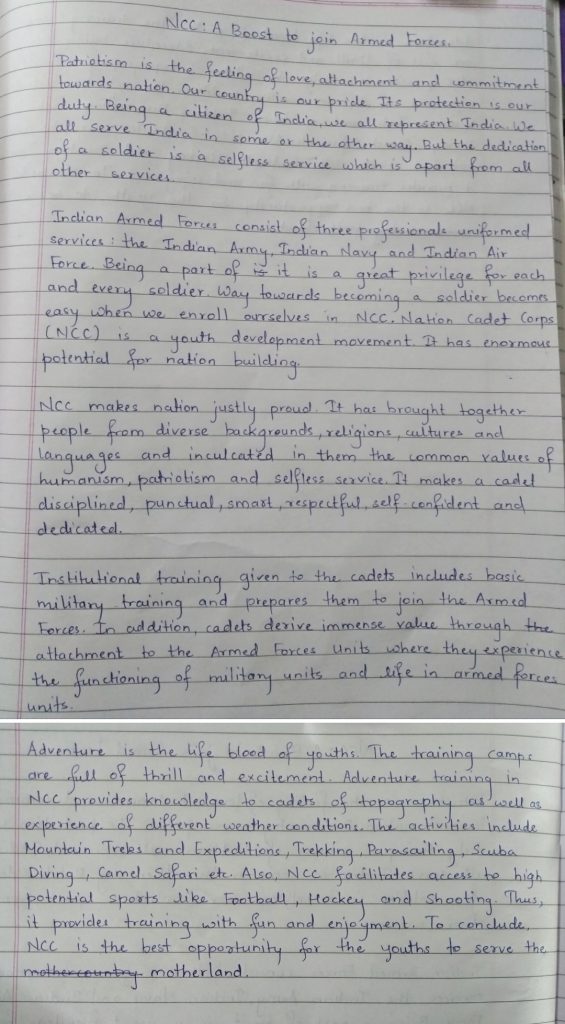 NCC: A Boost to join Armed Forces.
Patriotism is the feeling of love, attachment and commitment
towards nation. Our country is our pride. Its protection is our
duty. Being a citizen of India, we all represent India. We
all serve India in some or the other way. But the dedication
of a soldier is a selfless service which is apart from all
other services.
Indian Armed Forces consist of three professionals uniformed
services: the Indian Army, Indian Navy and Indian Air
Force. Being a part of is it is a great privilege for each
and every soldier. Way towards becoming a soldier becomes
easy when we enroll ourselves in NCC. Nation Cadet Corps
(NCC) is a youth development movement. It has enormous
potential for nation building.
NCC makes nation justly proud. It has brought together
people from diverse backgrounds, religions, cultures and
languages and inculcated in them the common values of
humanism, patriotism and selfless service. It makes a cadet
disciplined, punctual, smart, respectful, self-confident and
dedicated.
Institutional training given to the cadets includes basic
military training and prepares them to join the Armed
Forces. In addition, cadets derive immense value through the
attachment to the Armed Forces Units where they experience
the functioning of military units and life in armed forces
units.
Adventure is the life blood of youths. The training camps
are full of thrill and excitement. Adventure training in
NCC provides knowledge to cadets of topography as well as
experience of different weather conditions. The activities include
Mountain Treks and Expeditions, Trekking, Parasailing, Scuba
Diving, Camel Safari etc. Also, NCC facilitates access to high
potential sports like Football, Hockey and Shooting. Thus,
it provides training with fun and enjoyment. To conclude,
NCC is the best opportunity for the youths to serve the
mothercountry motherland.